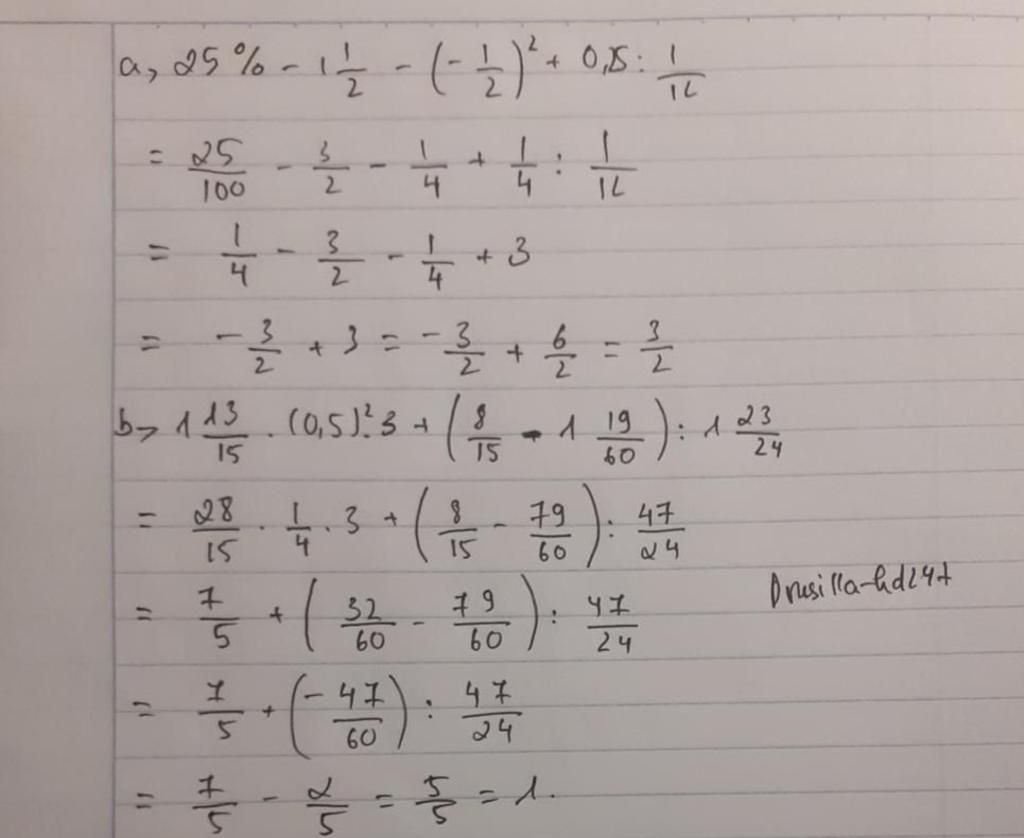 a, 25% - 1 1/2 - (-1/2)² + 0,25 : 1/12
= 25/100 - 3/2 - 1/4 + 1/4 : 1/12
= 1/4 - 3/2 - 1/4 + 3
= -3/2 + 3 = -3/2 + 6/2 = 3/2
b, 1 13/15 . (0,5)² . 3 + (8/15 - 1 19/60) : 1 23/24
= 28/15 . 1/4 . 3 + (8/15 - 79/60) : 47/24
= 7/5 + (32/60 - 79/60) : 47/24
Drusilla-hd247
= 7/5 + (-47/60) : 47/24
= 7/5 - 2/5 = 5/5 = 1.